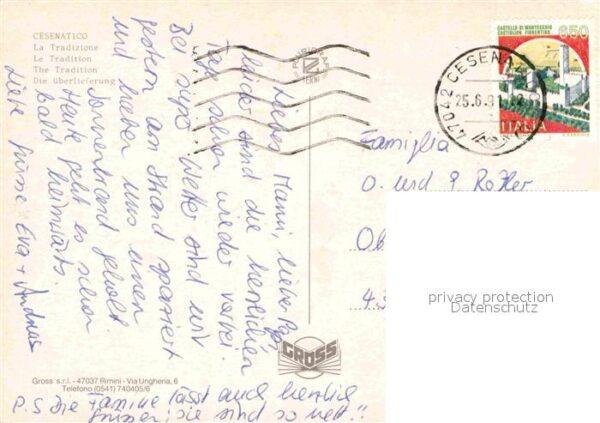 CESENATICO
La Tradizione
Le Tradition
The Tradition
Die überlieferung
CASTELLO DI MONTECCHIO
CASTIGLION FIORENTINO
650
ITALIA
47042 CESENA
25.6.91
Liebe Mami, lieber Papi,
leider sind die herrlichen
Tage schon wieder vorbei.
Bei super Wetter sind wir
gestern am Strand spaziert
und haben uns einen
Sonnenbrand geholt
Heute geht es schon
bald heimwärts.
Liebe Grüsse Eva + Andreas
Famiglia
O. und
Ob
4.3
privacy protection
Datenschutz
GROSS
Gross s.r.l. - 47037 Rimini - Via Ungheria, 6
Telefono (0541) 740405/6
P.S Die Familie lässt auch herzlich
grüssen; sie sind so nett!!